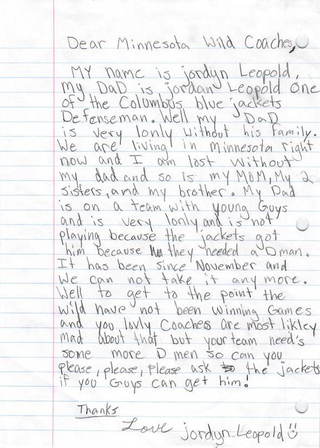 Dear Minnesota Wild Coaches,
My name is jordyn Leopold,
my DaD is jordan Leopold one
of the Columbus blue jackets
Defenseman. Well my DaD
is very lonly without his family.
We are living in minnesota right
now and I am lost without
my dad and so is my MOM, My 2
sisters, and my brother. My Dad
is on a team with young Guys
and is very lonly and is not
playing because the jackets got
him because they needed a Dman.
It has been since November and
We can not take it any more.
Well to get to the point the
wild have not been winning Games
and you lovly Coaches are most likley
mad about that but your team need's
some more D men so can you
please, please, Please ask the jackets
if you Guys can get him!
Thanks
Love jordyn Leopold